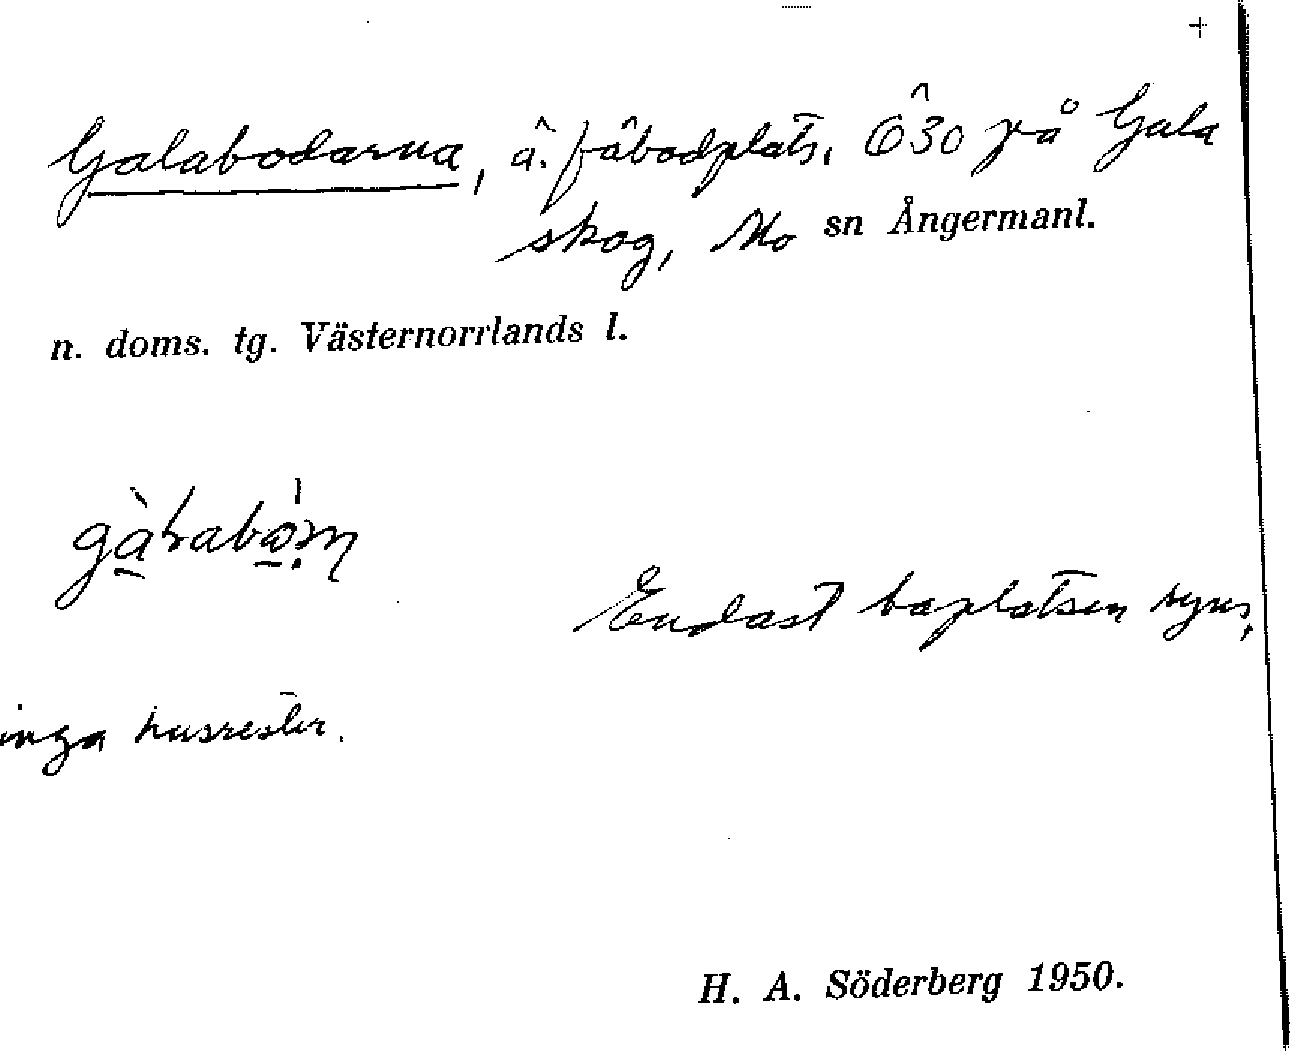 +
Galabodarna, â. fäbodplats, Ö30 på Gala
skog, Mo sn Ångermanl.
n. doms. tg. Västernorrlands l.
Endast baplatsen syns,
inga husrester.
H. A. Söderberg 1950.